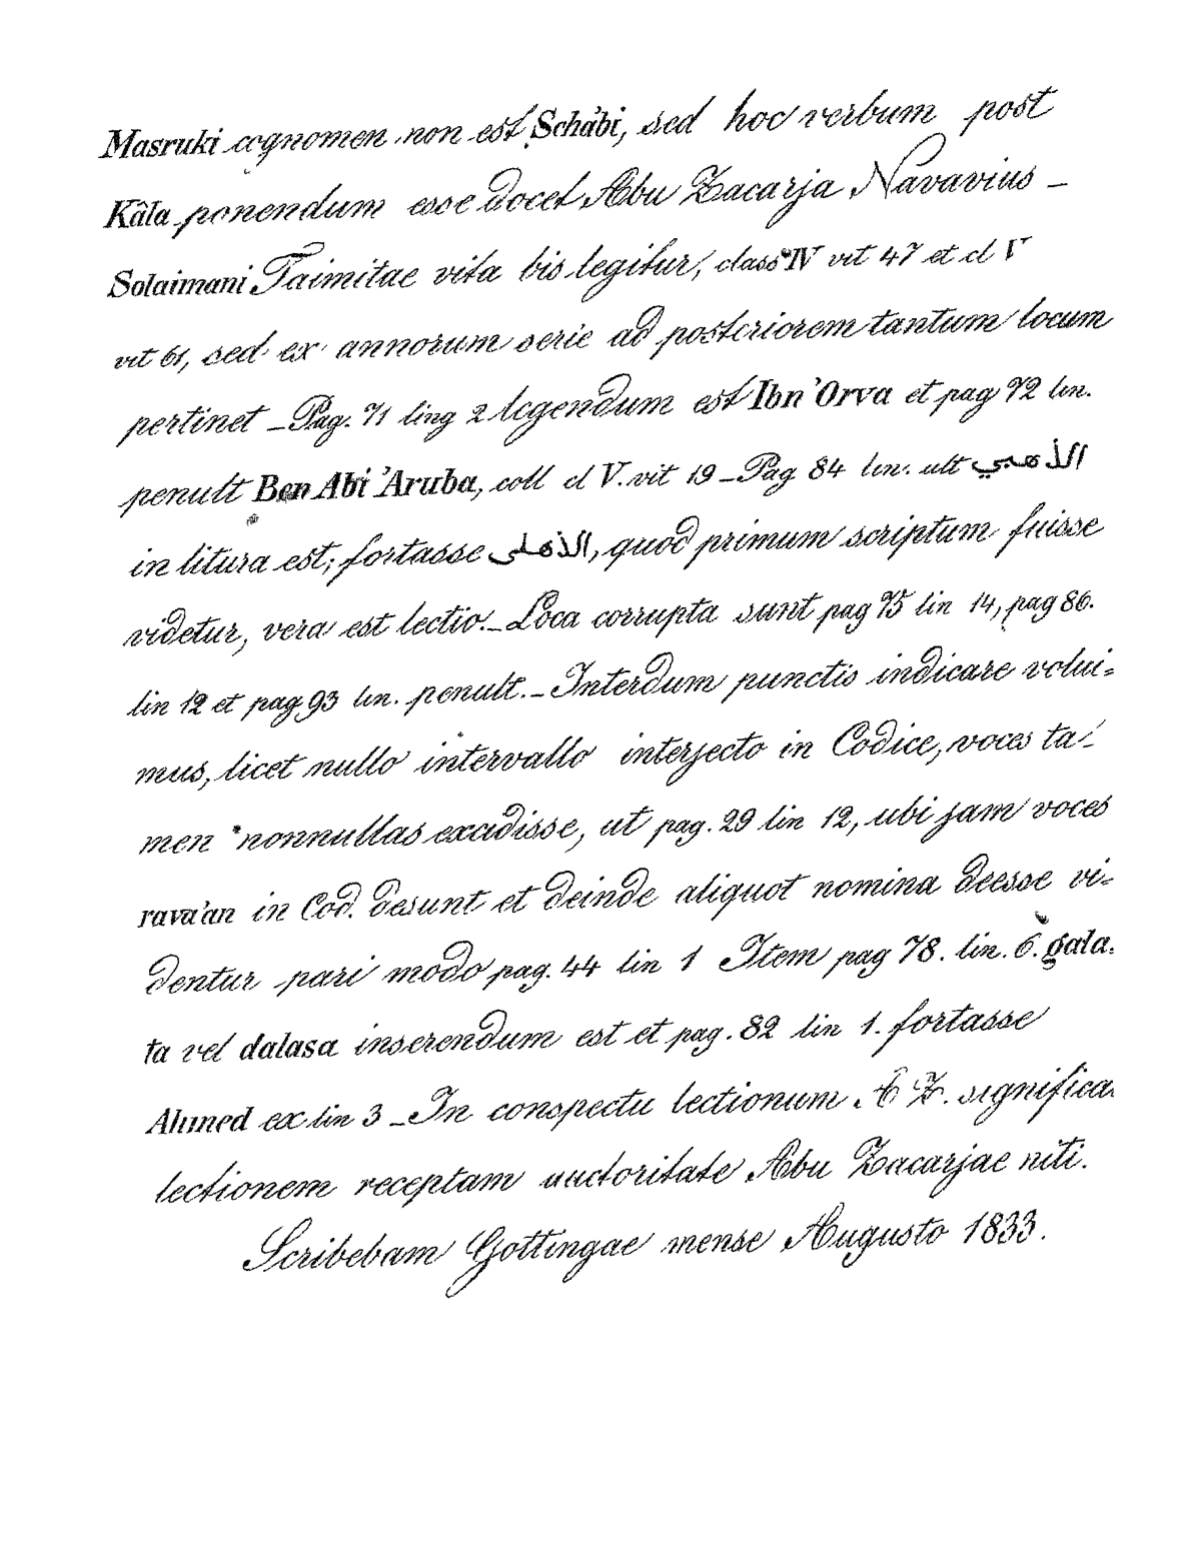 Masruki cognomen non est Schàbi, sed hoc verbum post
Kâla ponendum esse docet Abu Zacarja Navavius –
Solaimani Taimitae vita bis legitur, class IV vit 47 et cl V
vit 61, sed ex annorum serie ad posteriorem tantum locum
pertinet – Pag. 71 ling 2 legendum est Ibn 'Orva et pag 72 lin.
penult Ben Abi 'Aruba, coll cl V. vit 19 – Pag 84 lin. ult الذهبي
in litura est; fortasse الذهلى, quod primum scriptum fuisse
videtur, vera est lectio. – Loca corrupta sunt pag 75 lin 14, pag 86.
lin 12 et pag 93 lin. penult. – Interdum punctis indicare volui=
mus, licet nullo intervallo interjecto in Codice, voces ta-
men nonnullas excidisse, ut pag. 29 lin 12, ubi jam voces
rava'an in Cod. desunt et deinde aliquot nomina deesse vi=
dentur pari modo pag. 44 lin 1 Item pag 78. lin. 6. gala=
ta vel dalasa inserendum est et pag. 82 lin 1. fortasse
Ahmed ex lin 3 – In conspectu lectionum A Z. significa
lectionem receptam auctoritate Abu Zacarjae niti.
Scribebam Gottingae mense Augusto 1833.